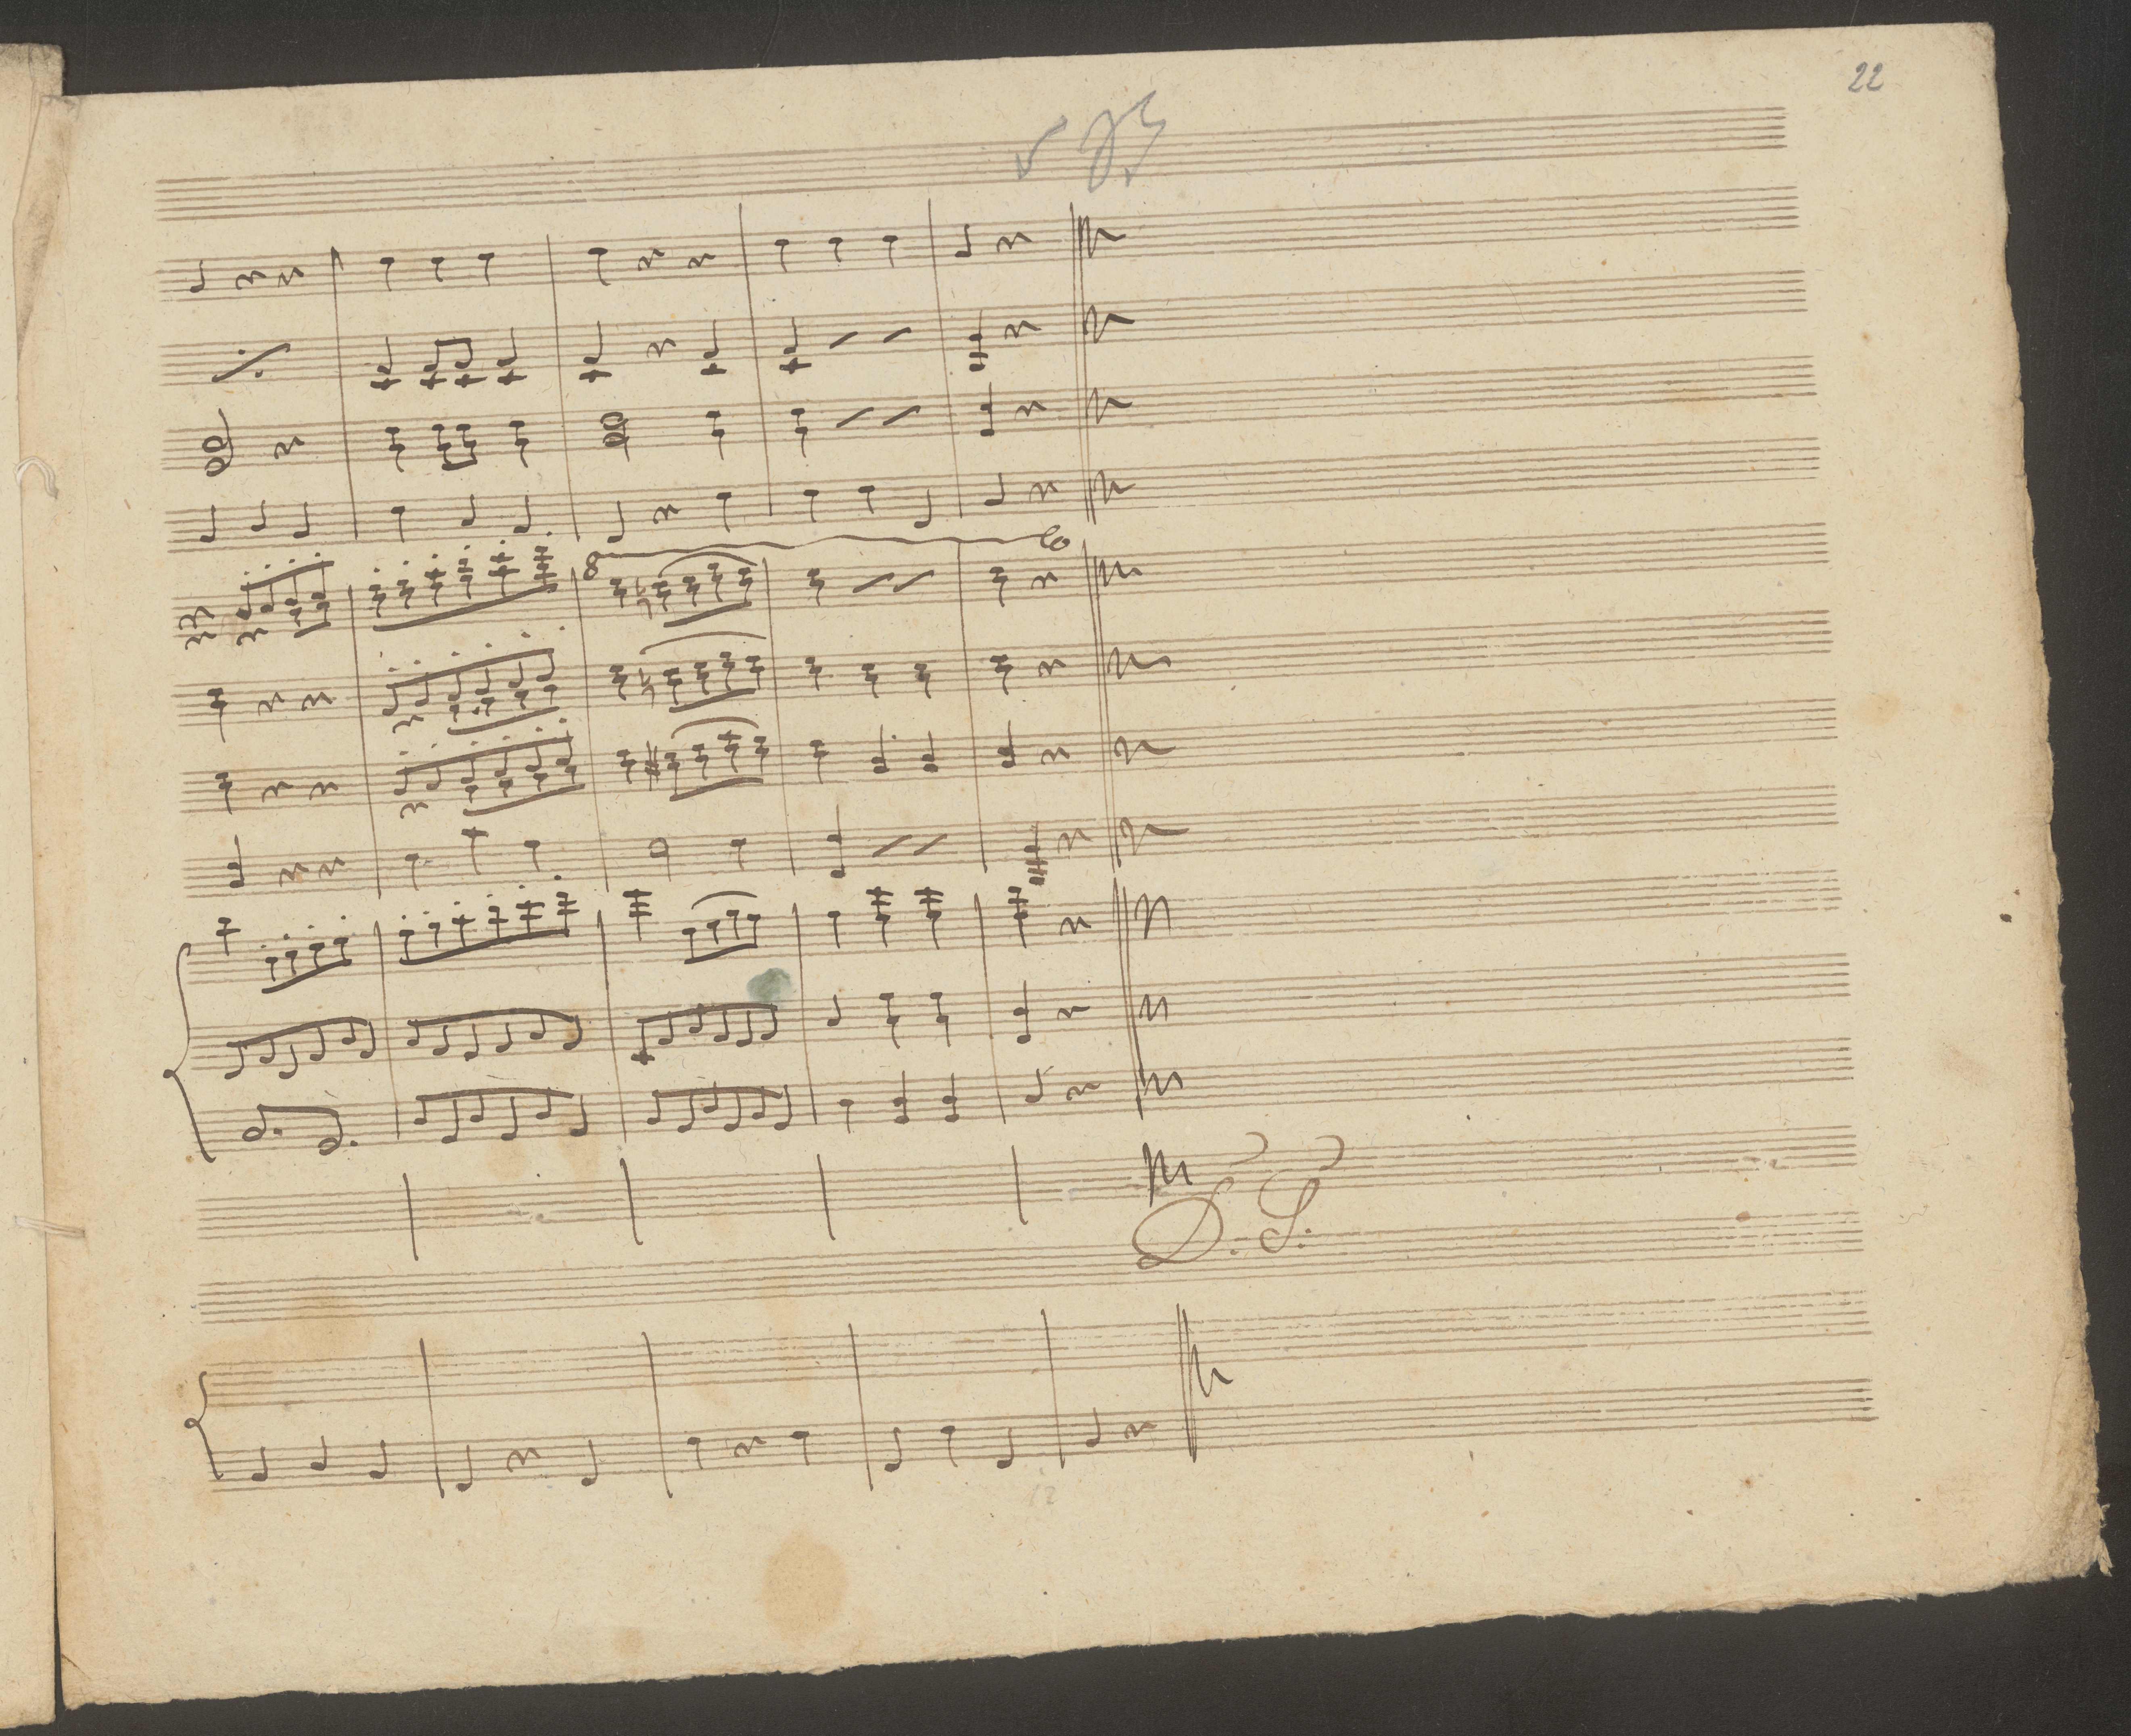 22
8
D. S.
12